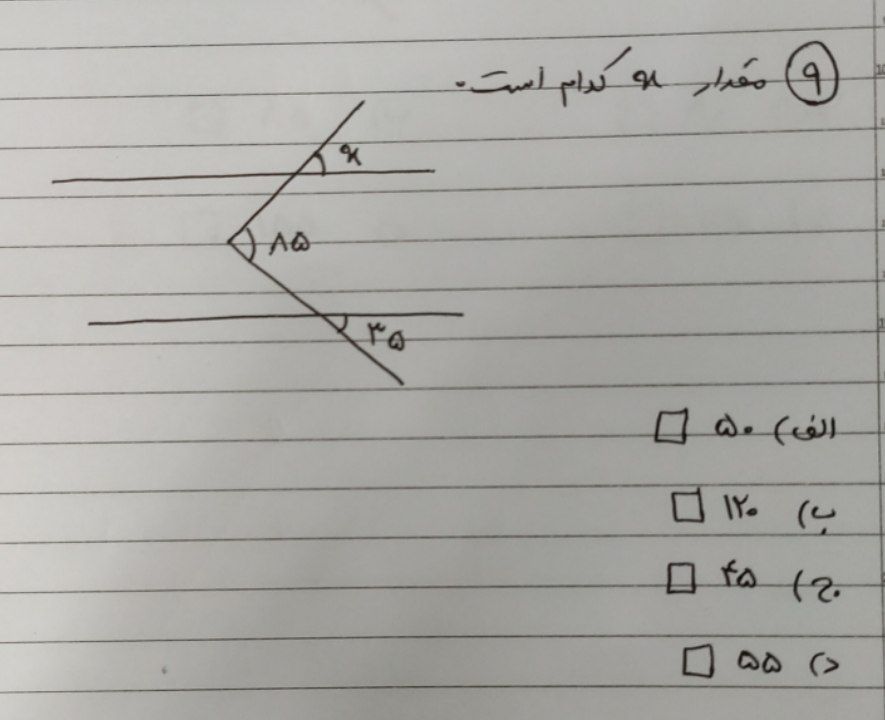 ۹ مقدار x کدام است.
x
۸۵
۳۵
الف) ۵۰
ب) ۱۲۰
ج) ۴۵
د) ۵۵